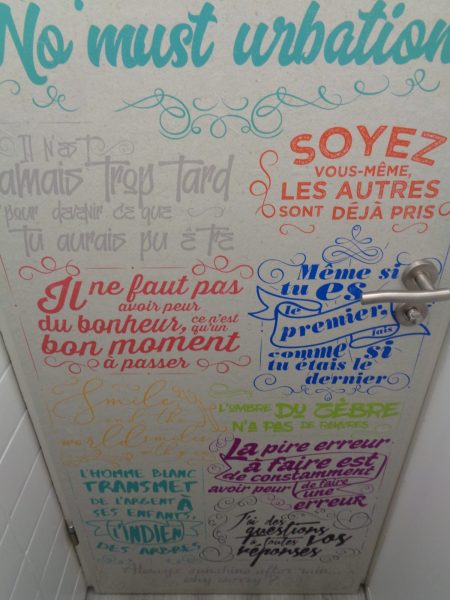 No must urbation
Il n'est
jamais trop tard
pour devenir ce que
tu aurais pu être
SOYEZ
VOUS-MÊME,
LES AUTRES
SONT DÉJÀ PRIS
Il ne faut pas
avoir peur
du bonheur, ce n'est
qu'un
bon moment
à passer
Même si
tu es
le
premier,
fais
comme si
tu étais le
dernier
Smile
and the
world smiles
with you
L'OMBRE DU ZÈBRE
N'A PAS DE RAYURES
La pire erreur
à faire est
de constamment
avoir peur de faire
une
erreur
L'HOMME BLANC
TRANSMET
DE L'ARGENT À
SES ENFANTS,
L'INDIEN
DES ARBRES
J'ai des
questions
à toutes vos
réponses
Always sunshine after rain...
why worry?